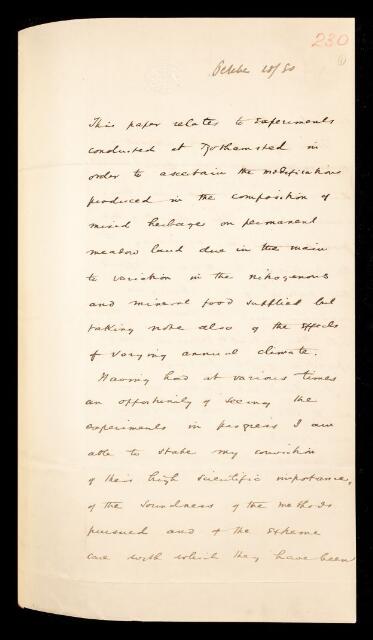 230
(1)
October 28/80
This paper relates to Experiments
conducted at Rothamsted in
order to ascertain the modifications
produced in the composition of
mixed herbage on permanent
meadow land due in the main
to variation in the nitrogenous
and mineral food supplied but
taking note also of the effects
of varying annual climate.
Having had at various times
an opportunity of seeing the
experiments in progress I am
able to state my conviction
of their high scientific importance,
of the soundness of the methods
pursued and of the extreme
care with which they have been